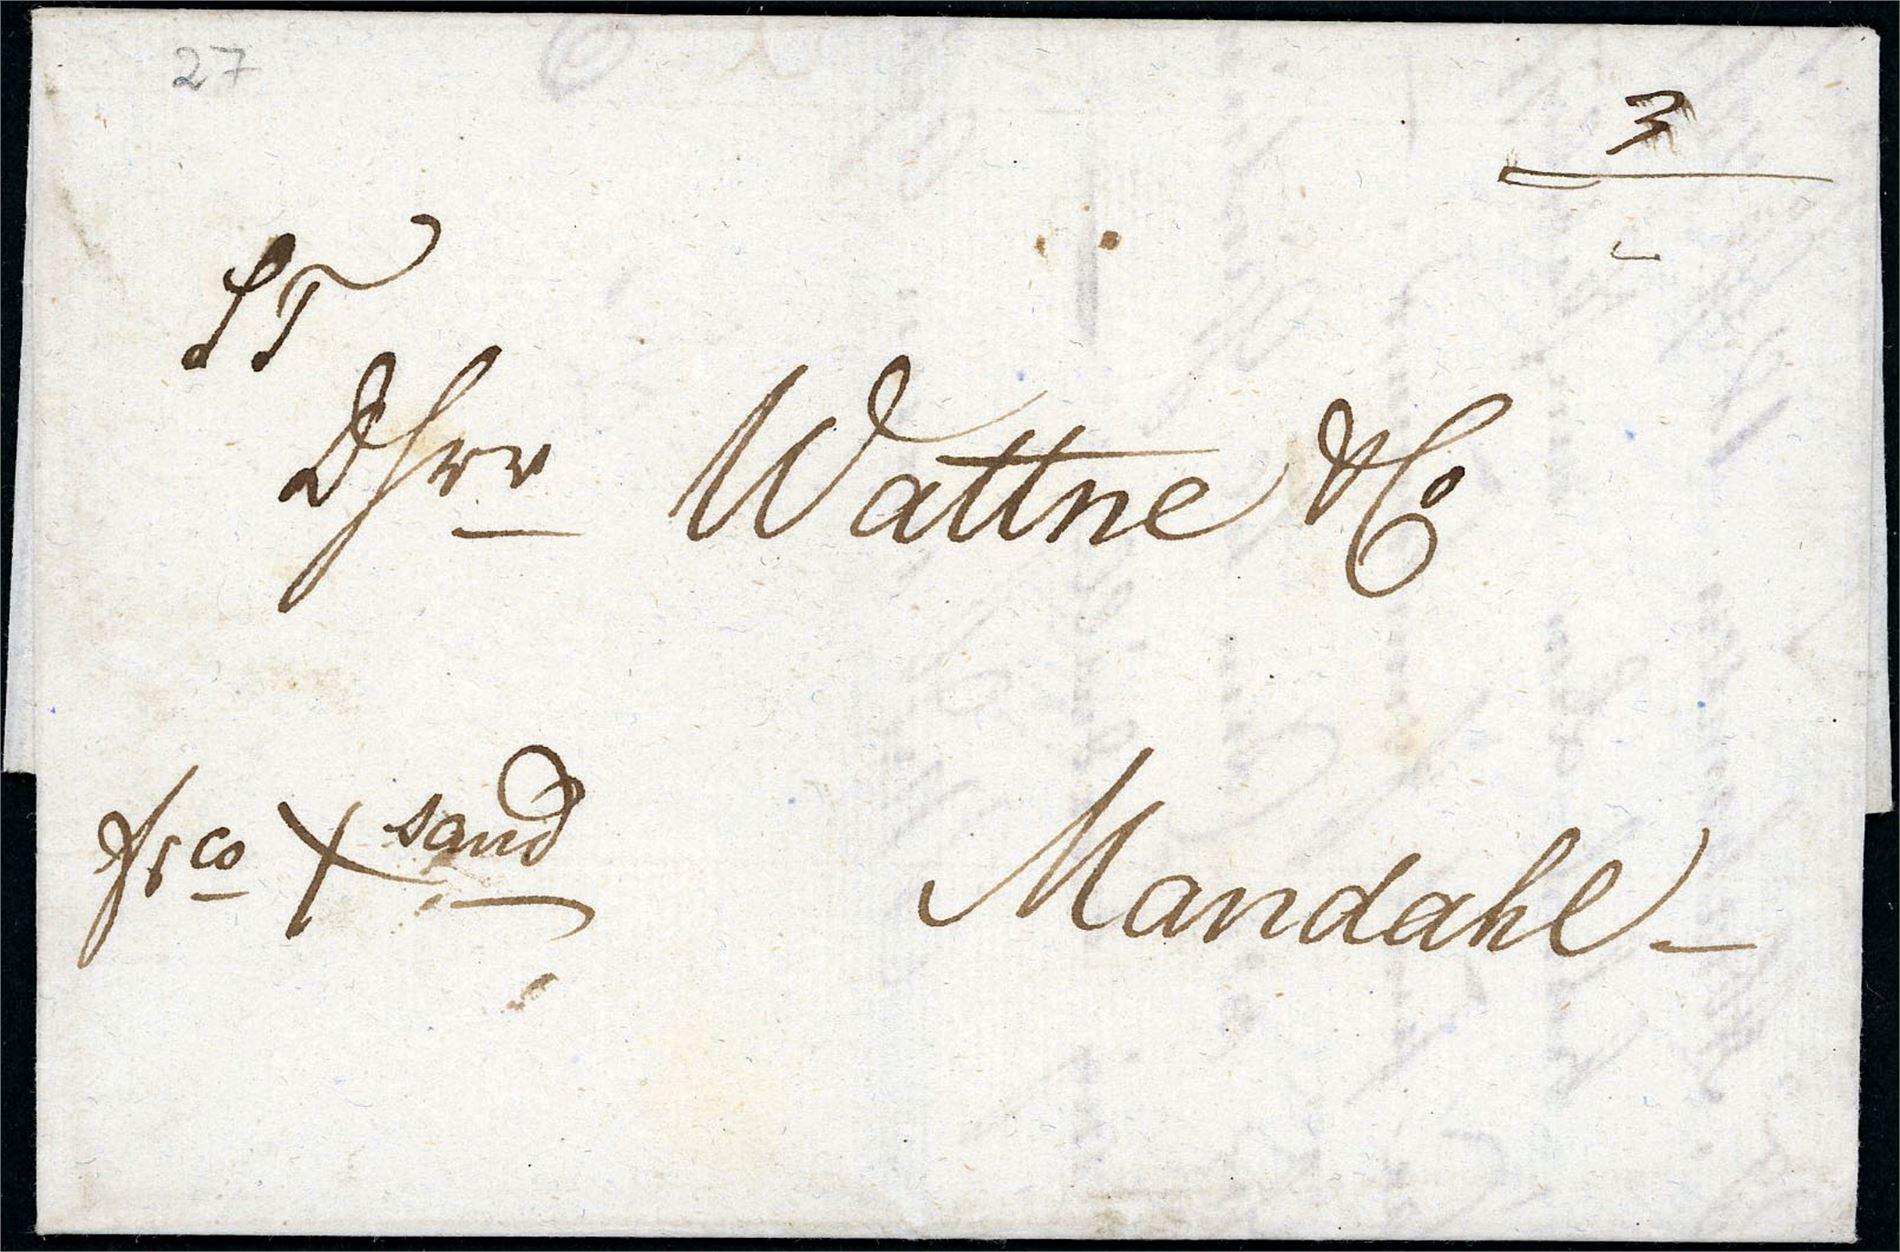 27
3
ST
Dhrr Wattne & Co
frco Xsand
Mandahl